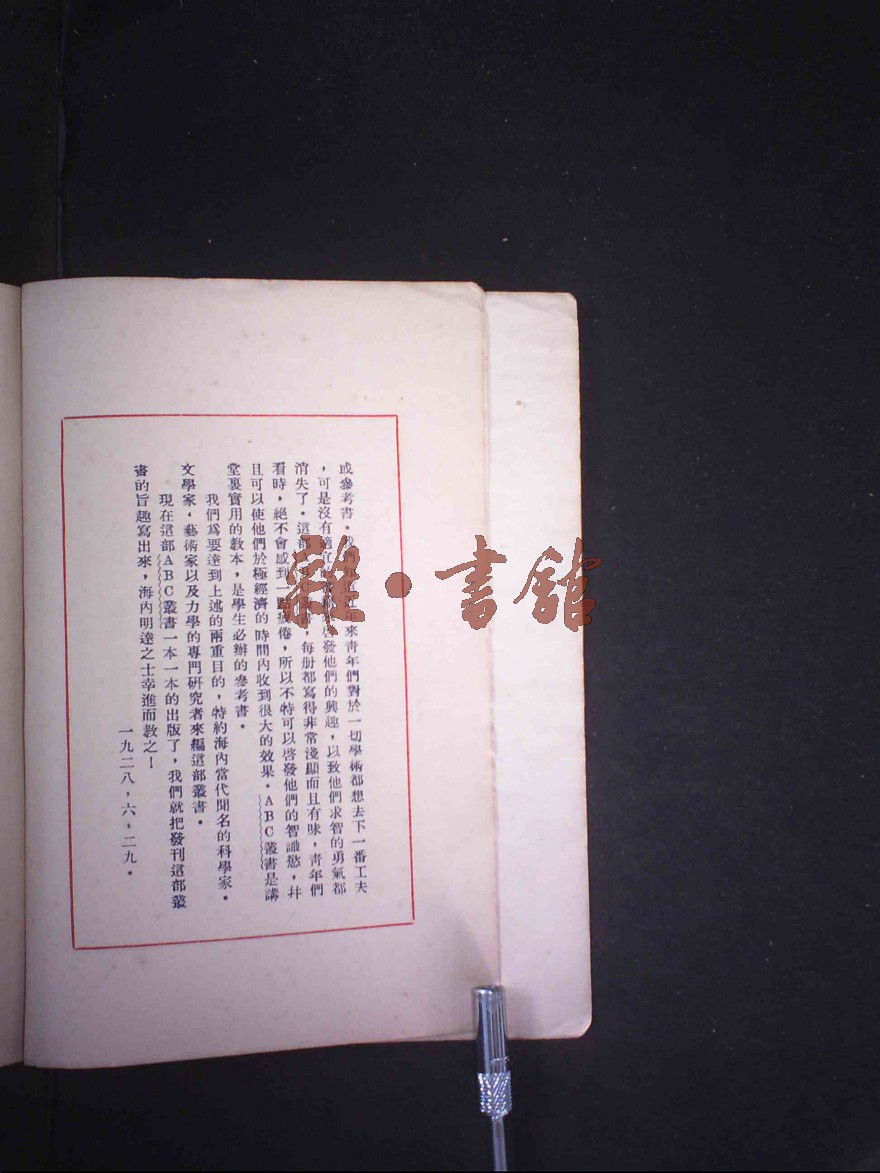 或參考書。我們知道近年來青年們對於一切學術都想去下一番工夫
，可是沒有適宜發他們的興趣，以致他們求智的勇氣都
消失了。這部書，每册都寫得非常淺顯而且有味，青年們
看時，絕不會感到一點疲倦，所以不特可以啓發他們的智識慾，幷
且可以使他們於極經濟的時間內收到很大的效果。ABC叢書是講
堂裏實用的敎本，是學生必辦的參考書。
我們爲要達到上述的兩重目的，特約海內當代聞名的科學家。
文學家，藝術家以及力學的專門研究者來編這部叢書。
現在這部ABC叢書一本一本的出版了，我們就把發刊這部叢
書的旨趣寫出來，海內明達之士幸進而敎之！
一九二八，六，二九。
雜·書館